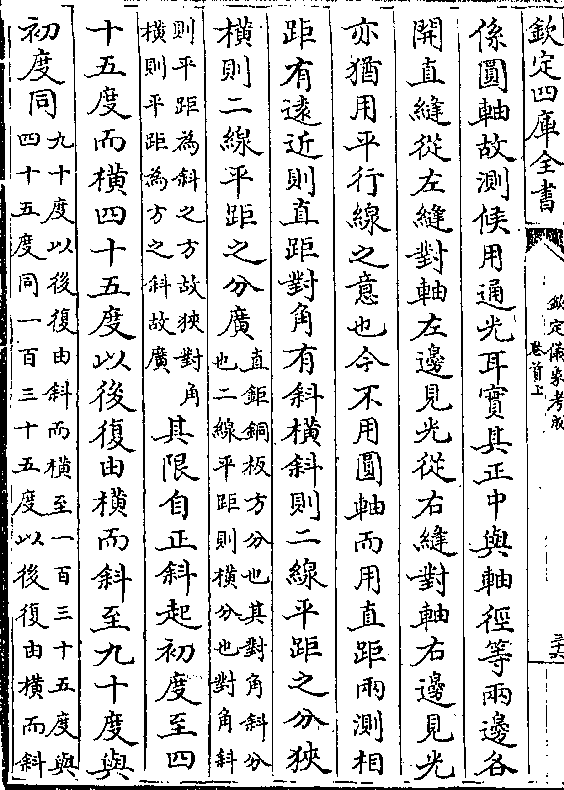 欽定四庫全書
欽定儀象考成
卷首上
三十六
係圓軸故測候用通光耳實其正中與軸徑等兩邊各
開直縫從左縫對軸左邊見光從右縫對軸右邊見光
亦猶用平行線之意也今不用圓軸而用直距兩測相
距有逺近則直距對角有斜橫斜則二線平距之分狹
橫則二線平距之分廣
直鉅銅板方分也其對角斜分
也二線平距則橫分也對角斜
則平距為斜之方故狹對角
橫則平距為方之斜故廣
其限自正斜起初度至四
十五度而橫四十五度以後復由橫而斜至九十度與
初度同
九十度以後復由斜而橫至一百三十五度與
四十五度同一百三十五度以後復由橫而斜